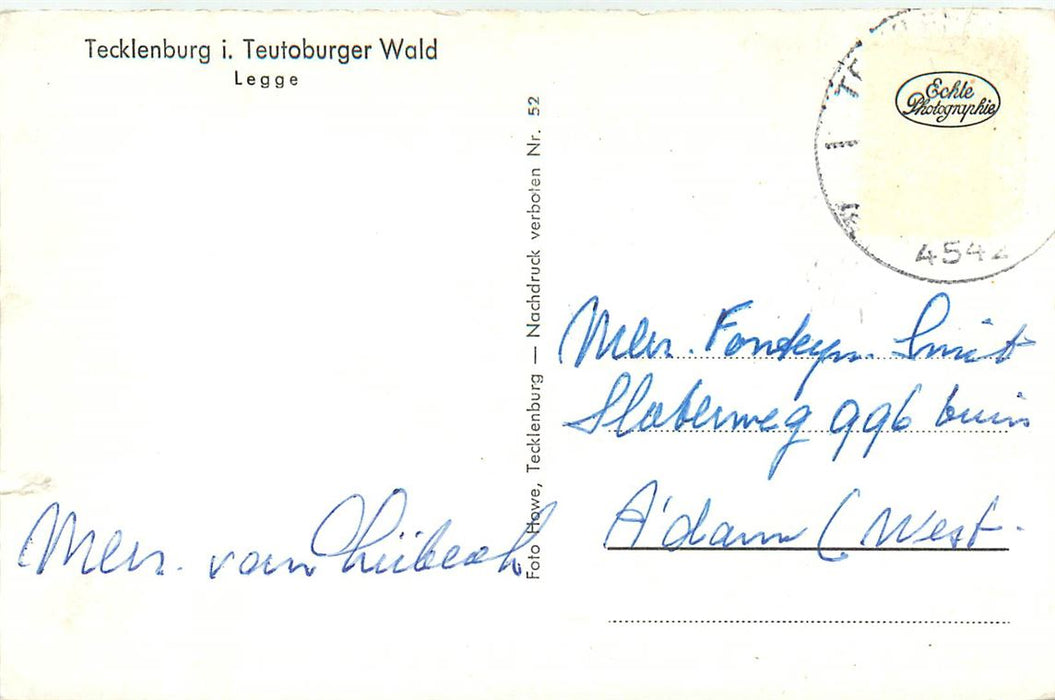 Tecklenburg i. Teutoburger Wald
Legge
Foto Howe, Tecklenburg — Nachdruck verboten Nr. 52
Echte
Photographie
4542
Mevr. Smit
996 
A'dam (West.
Mevr. van Lübeck